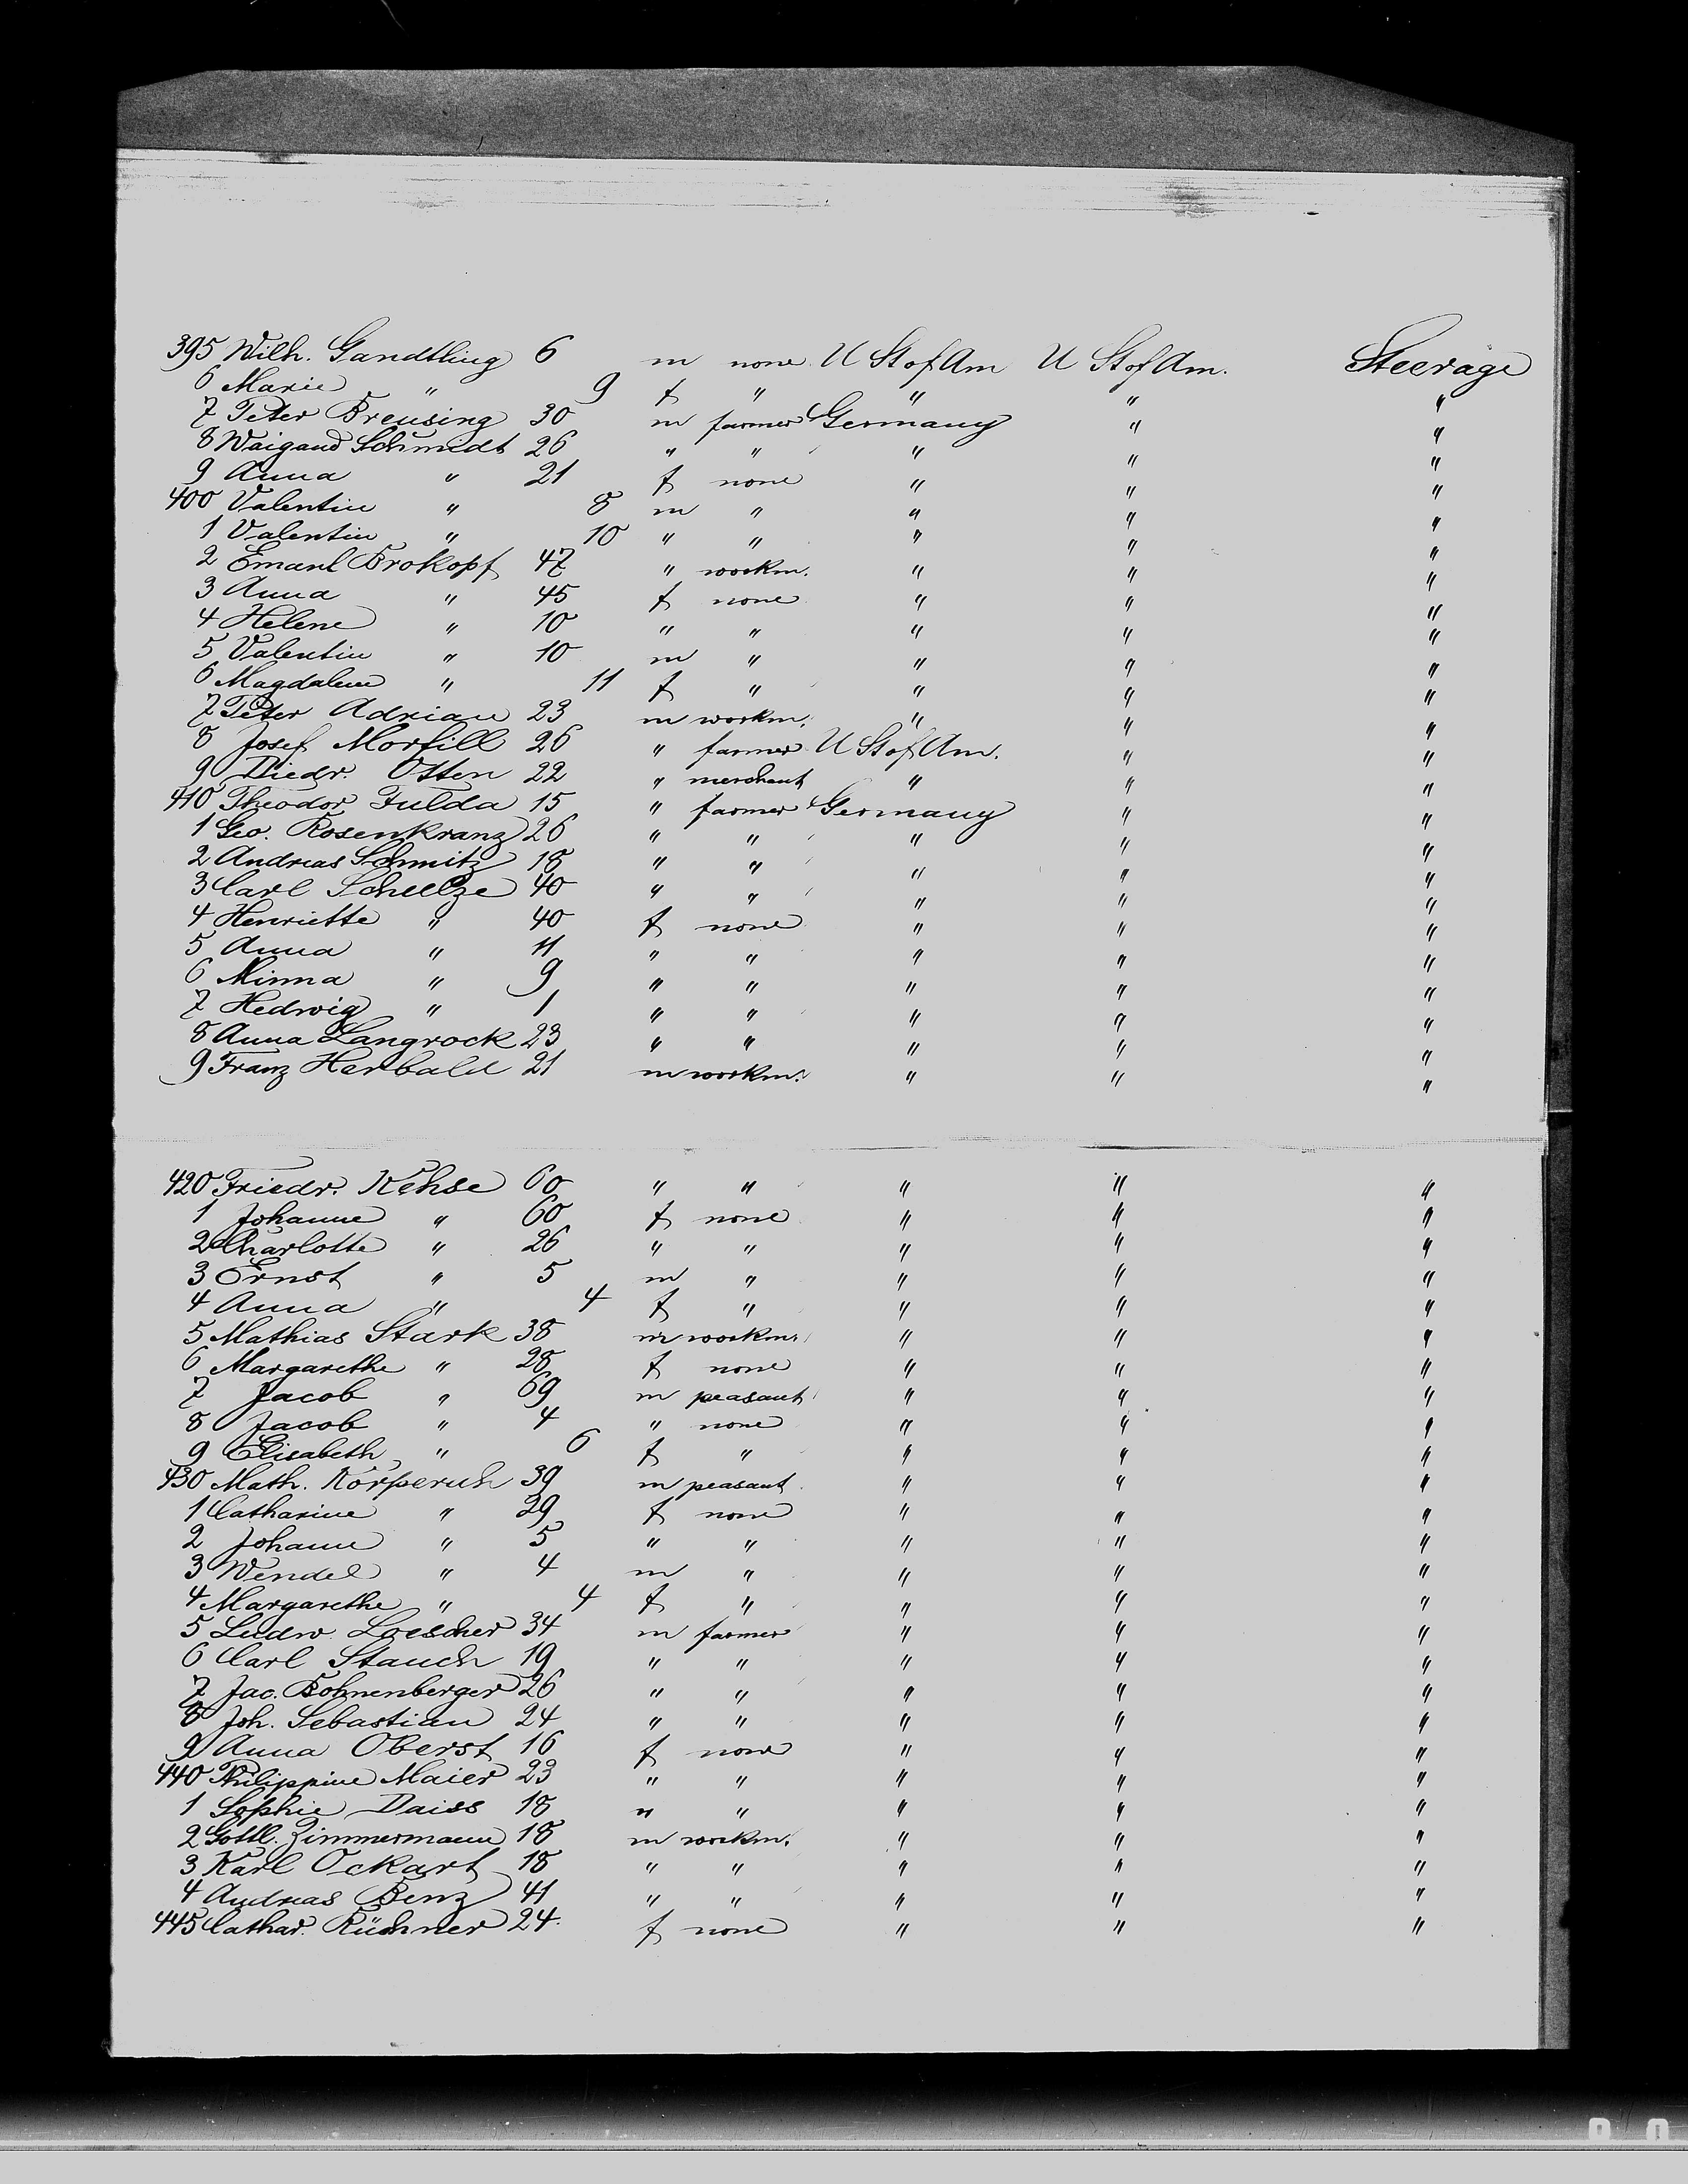 395 Wilh. Gandtling 6 m none U St of Am U St of Am. Steerage
6 Marie " 9 f " " " "
7 Peter Breusing 30 m farmer Germany " "
8 Waigand Schmidt 26 " " " " "
9 Anna " 21 f none " " "
400 Valentin " 8 m " " " "
1 Valentin " 10 " " " " "
2 Emanl Brokopf 47 " workm. " " "
3 Anna " 45 f none " " "
4 Helene " 10 " " " " "
5 Valentin " 10 m " " " "
6 Magdalene " 11 f " " " "
7 Peter Adrian 23 m workm. " " "
8 Josef Morfill 26 " farmer U St of Am. " "
9 Diedr. Otten 22 " merchant " " "
410 Theodor Fulda 15 " farmer Germany " "
1 Geo. Rosenkranz 26 " " " " "
2 Andreas Schmitz 18 " " " " "
3 Carl Schulze 40 " " " " "
4 Henriette " 40 f none " " "
5 Anna " 11 " " " " "
6 Minna " 9 " " " " "
7 Hedwig " 1 " " " " "
8 Anna Langrock 23 " " " " "
9 Franz Herbald 21 m workm. " " "
420 Friedr. Kehse 60 " " " " "
1 Johanne " 60 f none " " "
2 Charlotte " 26 " " " " "
3 Ernst " 5 m " " " "
4 Anna " 4 f " " " "
5 Mathias Stark 38 m workm. " " "
6 Margarethe " 28 f none " " "
7 Jacob " 69 m peasant " " "
8 Jacob " 4 " none " " "
9 Elisabeth " 6 f " " " "
430 Math. Körperich 39 m peasant " " "
1 Catharine " 29 f none " " "
2 Johann " 5 " " " " "
3 Wendel " 4 m " " " "
4 Margarethe " 4 f " " " "
5 Ludw. Loescher 34 m farmer " " "
6 Carl Stauch 19 " " " " "
7 Jac. Bohnenberger 26 " " " " "
8 Joh. Sebastian 24 " " " " "
9 Anna Oberst 16 f none " " "
440 Philippine Maier 23 " " " " "
1 Sophie Daiss 18 " " " " "
2 Gottl. Zimmermann 18 m workm. " " "
3 Karl Ockart 18 " " " " "
4 Andreas Benz 41 " " " " "
445 Cathar. Rüchner 24 f none " " "